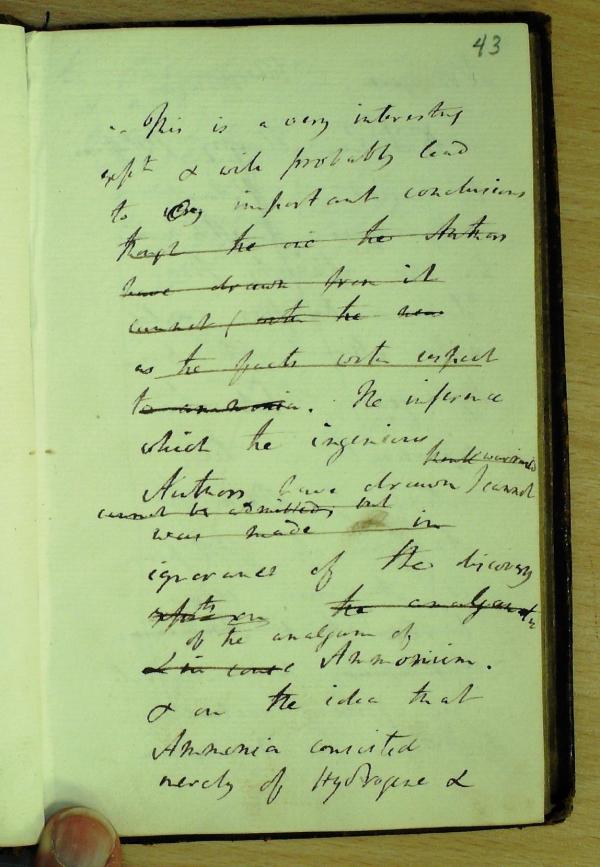 43
-- This is a very interesting
expt. & will probably lead
to very important conclusions
though the the Authors
have drawn from it
cannot with the new
as the facts with respect
to ammonia. The inference
which the ingenious
Authors have drawn cannot
cannot be admitted, but
was made in
ignorance of the discovery
expts on the amalgam
of the amalgam of
& in Ammonium.
& on the idea that
Ammonia consisted
merely of Hydrogene &